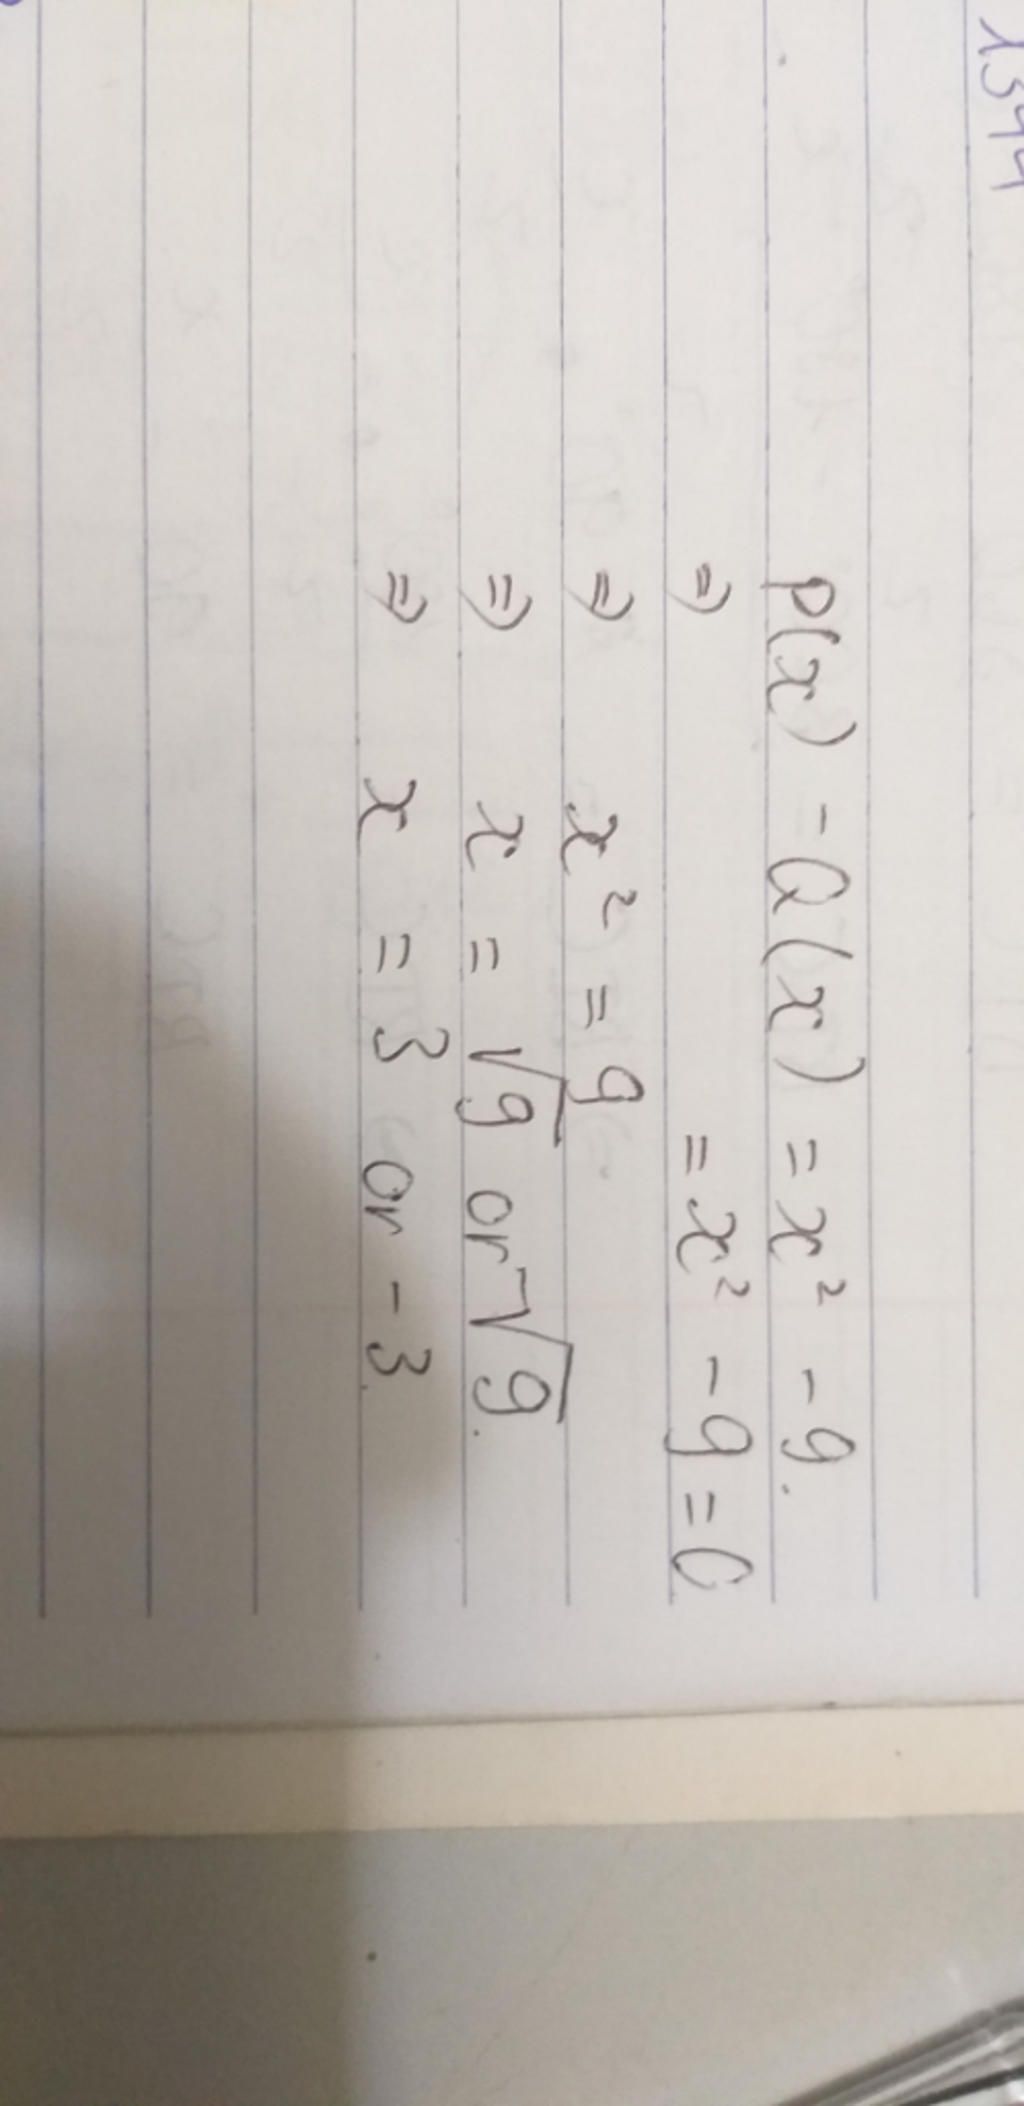 1344
P(x) - Q(x) = x² - 9.
⇒ = x² - 9 = 0
⇒ x² = 9
⇒ x = √9 or -√9.
⇒ x = 3 or - 3.